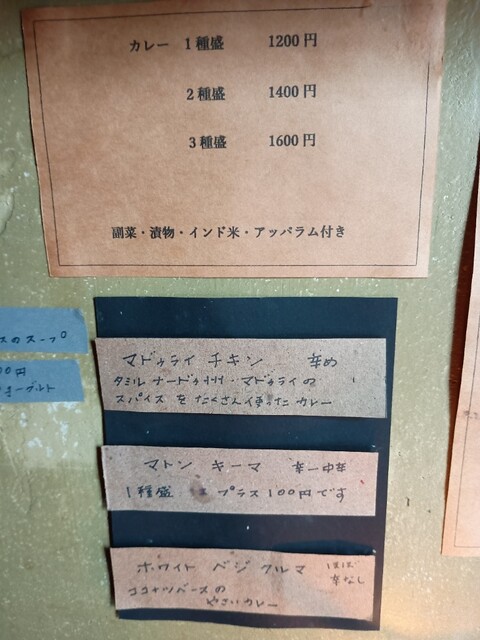 カレー 1種盛 1200円
2種盛 1400円
3種盛 1600円
副菜・漬物・インド米・アッパラム付き
スのスープ
00円
ヨーグルト
マドゥライ チキン 辛め
タミルナードゥ州・マドゥライの
スパイスをたくさん使ったカレー
マトン キーマ 辛ー中辛
1種盛は プラス100円です
ホワイト ベジ クルマ ほぼ
辛なし
ココナツベースの
やさいカレー